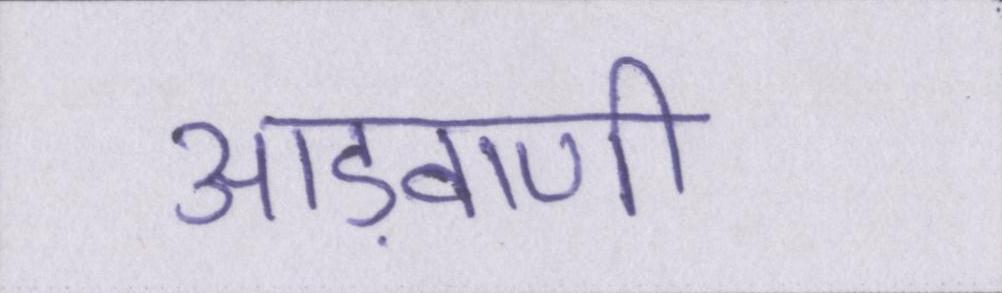 आड़वाणी